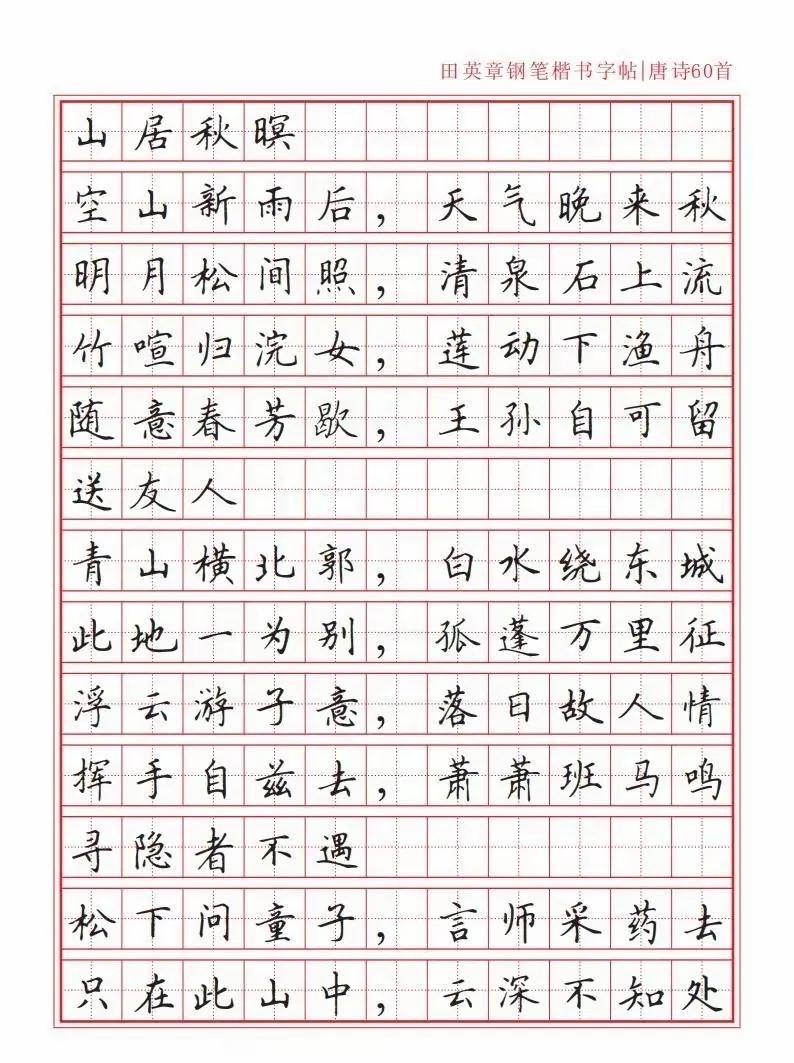 田英章钢笔楷书字帖|唐诗60首
山居秋暝
空山新雨后，天气晚来秋
明月松间照，清泉石上流
竹喧归浣女，莲动下渔舟
随意春芳歇，王孙自可留
送友人
青山横北郭，白水绕东城
此地一为别，孤蓬万里征
浮云游子意，落日故人情
挥手自兹去，萧萧班马鸣
寻隐者不遇
松下问童子，言师采药去
只在此山中，云深不知处